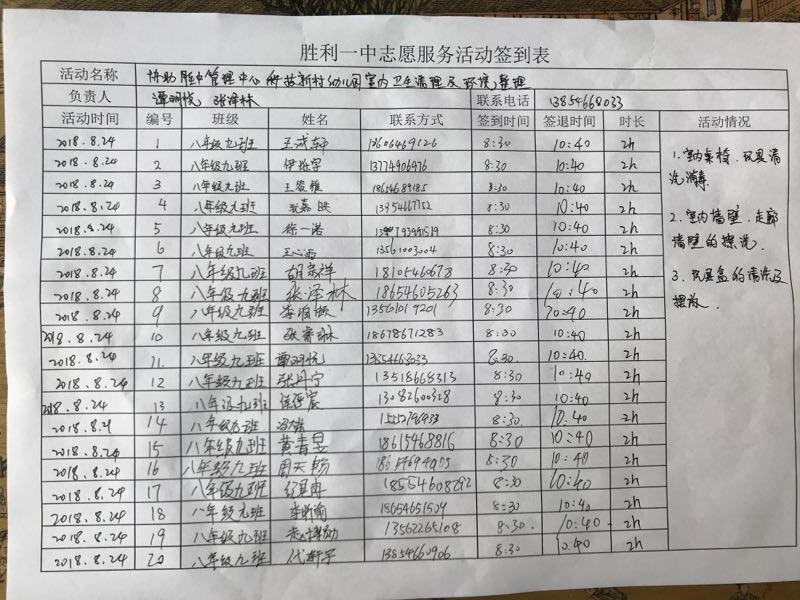 胜利一中志愿服务活动签到表
活动名称 协助胜中管理中心 新村幼儿园室内卫生清理及环境整理
负责人 谭明悦 张泽林 联系电话 13854668033
活动时间 编号 班级 姓名 联系方式 签到时间 签退时间 时长 活动情况
2018.8.24 1 八年级九班 王诚轩 13606469126 8:30 10:40 2h
2018.8.24 2 八年级九班 13774906976 8:30 10:40 2h
2018.8.24 3 八年级九班 18654689185 8:30 10:40 2h
2018.8.24 4 八年级九班 13954667752 8:30 10:40 2h
2018.8.24 5 八年级九班 徐一诺 8:30 10:40 2h
2018.8.24 6 八年级九班 13561003004 8:30 10:40 2h
2018.8.24 7 八年级九班 胡宗祥 8:30 10:40 2h
2018.8.24 8 八年级九班 张泽林 18654605263 8:30 10:40 2h
2018.8.24 9 八年级九班 8:30 10:40 2h
2018.8.24 10 八年级九班 18678671283 8:30 10:40 2h
2018.8.24 11. 八年级九班 谭明悦 8:30 10:40. 2h
2018.8.24 12 八年级九班 张丹宁 13518668313 8:30 10:40 2h
2018.8.24 13 八年级九班 13082600328 8:30 10:40 2h
14 八年级九班 8:30 10:40 2h
2018.8.24 15 八年级九班 黄青昱 18615468816 8:30 10:40 2h
2018.8.24 16 八年级九班 周天畅 8:30 10:40 2h
2018.8.24 17 八年级九班 18554608292 8:30 10:40 2h
2018.8.24 18 八年级九班 18654651509 8:30 10:40 2h
2018.8.24 19 八年级九班 13562265108 8:30. 10:40 2h
2018.8.24 20 八年级九班 代轩宇 13854660906 8:30 10:40 2h
1.室内桌椅、玩具清
洗消毒.
2.室内墙壁、走廊
墙壁的擦洗.
3.玩具盒的清洗及
摆放.